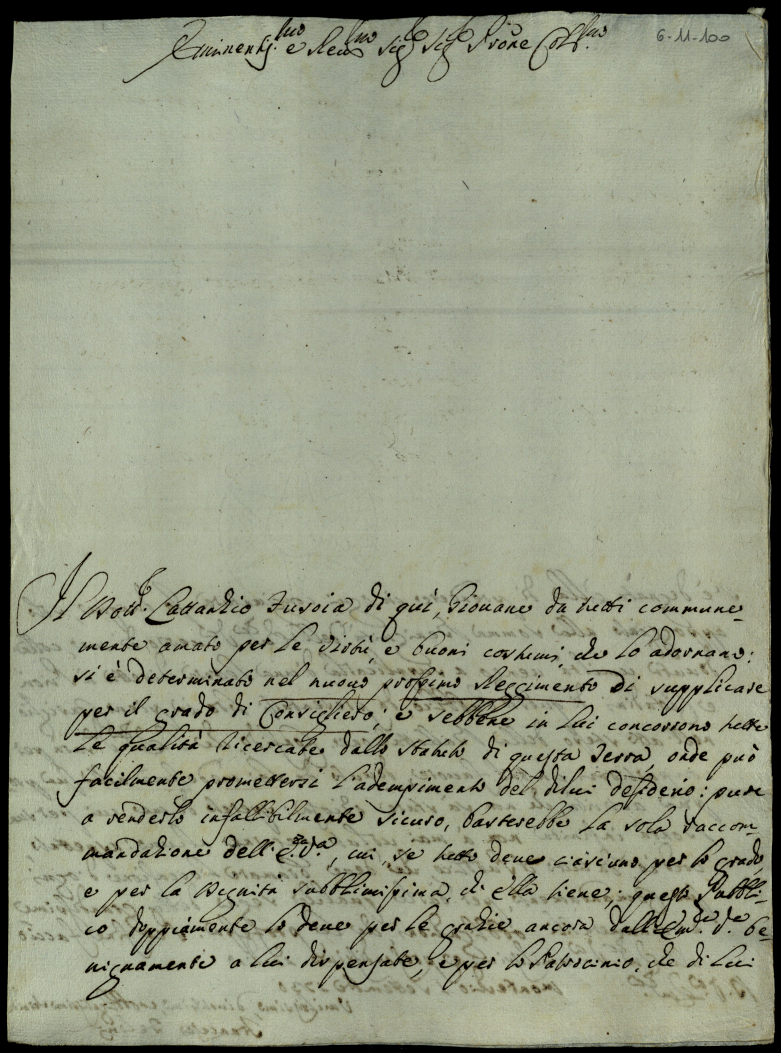 Eminentis.mo e Rev.mo Sig.r Sig.r Prōne Col.mo
6-11-100
Il Dott.r Cattardio Fusoia di quì, Giovane da tutti commune-
mente amato per le virtù, e buoni costumi, che lo adornano:
si è determinato nel nuovo prossimo Reggimento di supplicare
per il grado di Consigliero; e sebbene in lui concorrono tutte
le qualità ricercate dallo Statuto di questa Terra, onde può
facilmente promettersi l'adempimento del dilui desiderio: pure
a renderlo infallibilmente sicuro, basterebbe la sola raccom-
mandazione dell'E.za V.a, cui, se tutto deve ciascuno per lo grado
e per la Dignità sublimissima, ch'Ella tiene; questo Pubbli-
co doppiamente lo deve per le grazie ancora dall'Em.za V.a be-
nignamente a lui dispensate, e per lo Patrocinio, che di lui